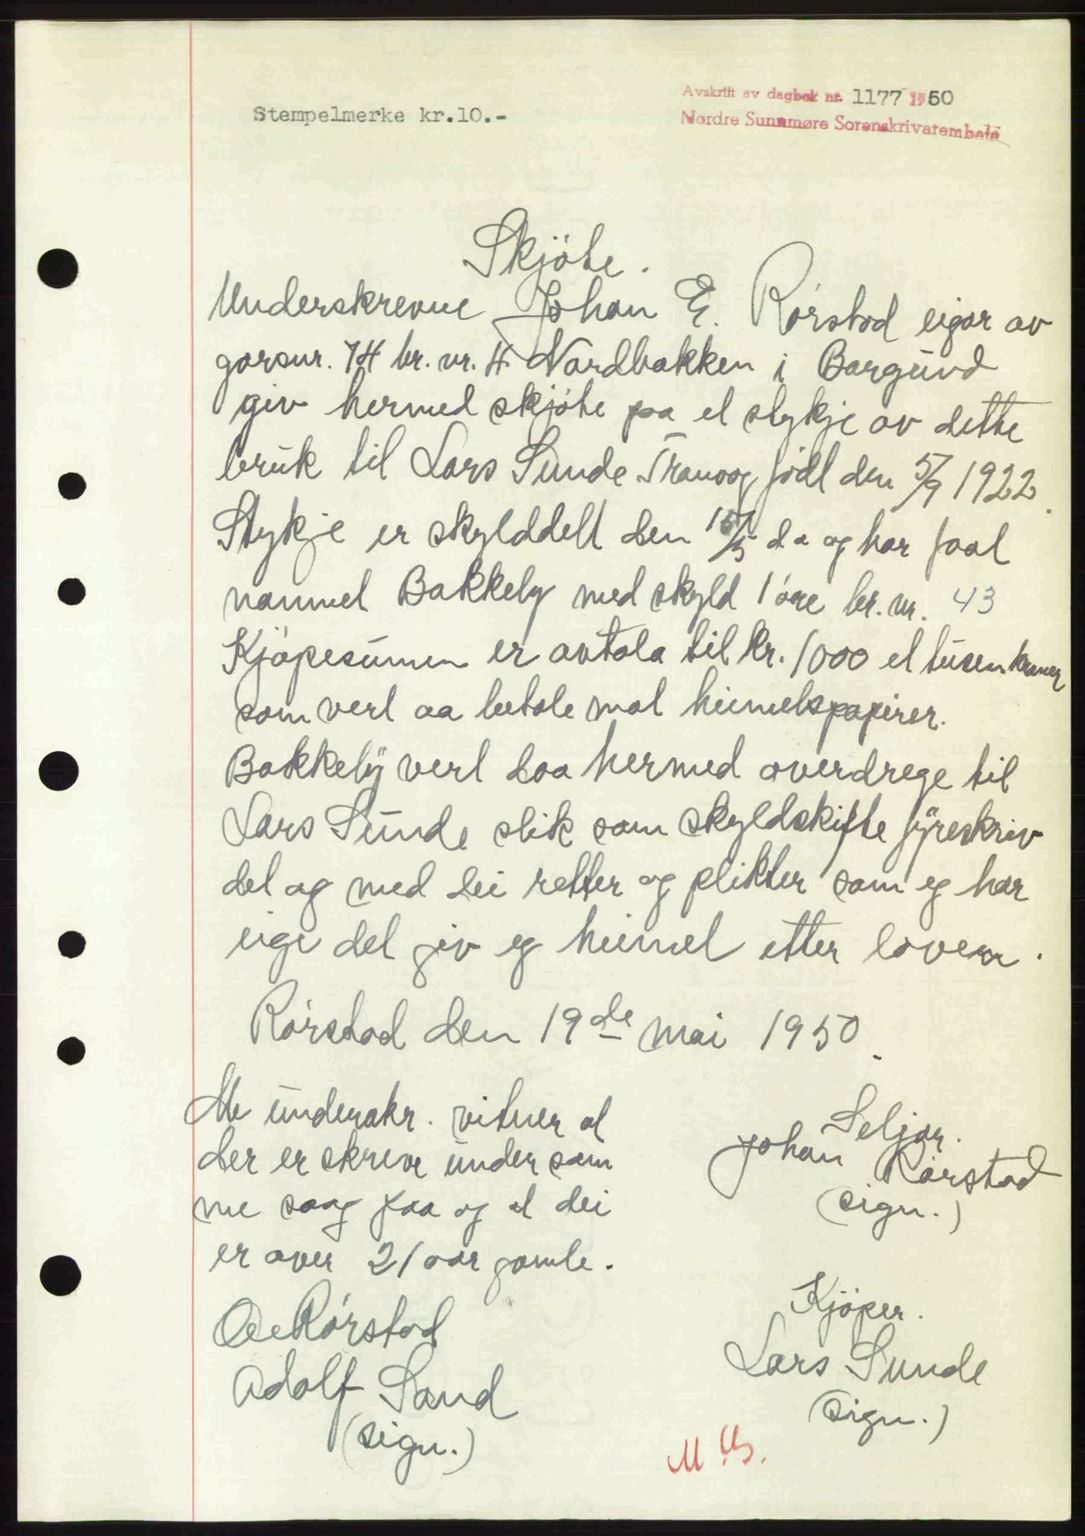 Stempelmerke kr.10.-
Avskrift av dagbok nr. 1177 1950
Nordre Sunnmøre Sorenskriverembete
Skjöte.
Underskrevne Johan E. Rörstad eigar av
garsnr. 74 br. nr. 4 Nordbakken i Borgund
giv hermed skjöte paa et stykje av dette
bruk til Lars Sunde Tranvåg födt den 5/9 1922.
Stykje er skylddelt den 15/5 d.a og har faat
namnet Bakkely med skyld 1 öre br. nr. 43
Kjöpesumen er avtala til kr. 1000 et tusen kroner
som vert aa betale mot heimelspapirer.
Bakkely vert daa hermed overdrege til
Lars Sunde slik som skyldskifte fyreskriv
det og med dei retter og plikter som eg har
eige det giv eg heimel etter loven.
Rörstad den 19de mai 1950.
Me underskr. vitner at
der er skreve under som
me saag paa og at dei
er over 21 aar gamle.
Ole Rörstad
Adolf Sand
(sign.)
Seljar.
Johan Rörstad
(sign.)
Kjöper.
Lars Sunde
(sign.)